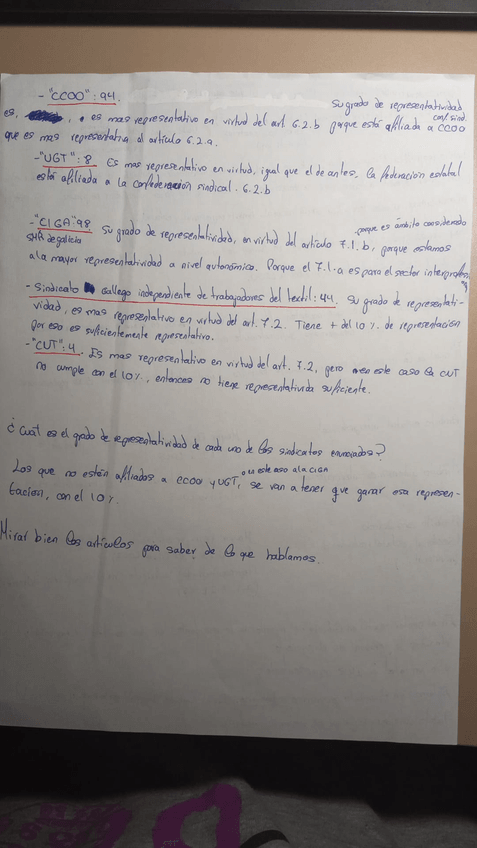 - "CCOO": 94.
Su grado de representatividad
es, , es mas representativo en virtud del art 6.2.b porque está afiliada a CCOO
conf.sind.
que es mas representativa al artículo 6.2.a.
- "UGT": 8 Es mas representativo en virtud, igual que el de antes. la federación estatal
está afiliada a la confederación sindical. 6.2.b
- "CIGA" 98 porque es ámbito considerado
SMR de galicia Su grado de representatividad, en virtud del textil artículo 7.1.b, porque estamos
a la mayor representatividad a nivel autonómico. Porque el 7.1.a es para el sector interprofes.
- Sindicato Gallego independiente de trabajadores del textil: 44. Su grado de representati-
vidad, es mas representativo en virtud del art. 7.2. Tiene + del 10% de representación
por eso es suficientemente representativo.
- "CUT": 4. Es mas representativo en virtud del art. 7.2, pero en este caso la CUT
no cumple con el 10%, entonces no tiene representativida suficiente.
¿ Cuál es el grado de representatividad de cada uno de los sindicatos enunciados?
o en este caso a la CIGA
Los que no estén afiliados a CCOO y UGT, se van a tener que ganar esa represen-
tación, con el 10%.
Mirar bien los artículos para saber de lo que hablamos.